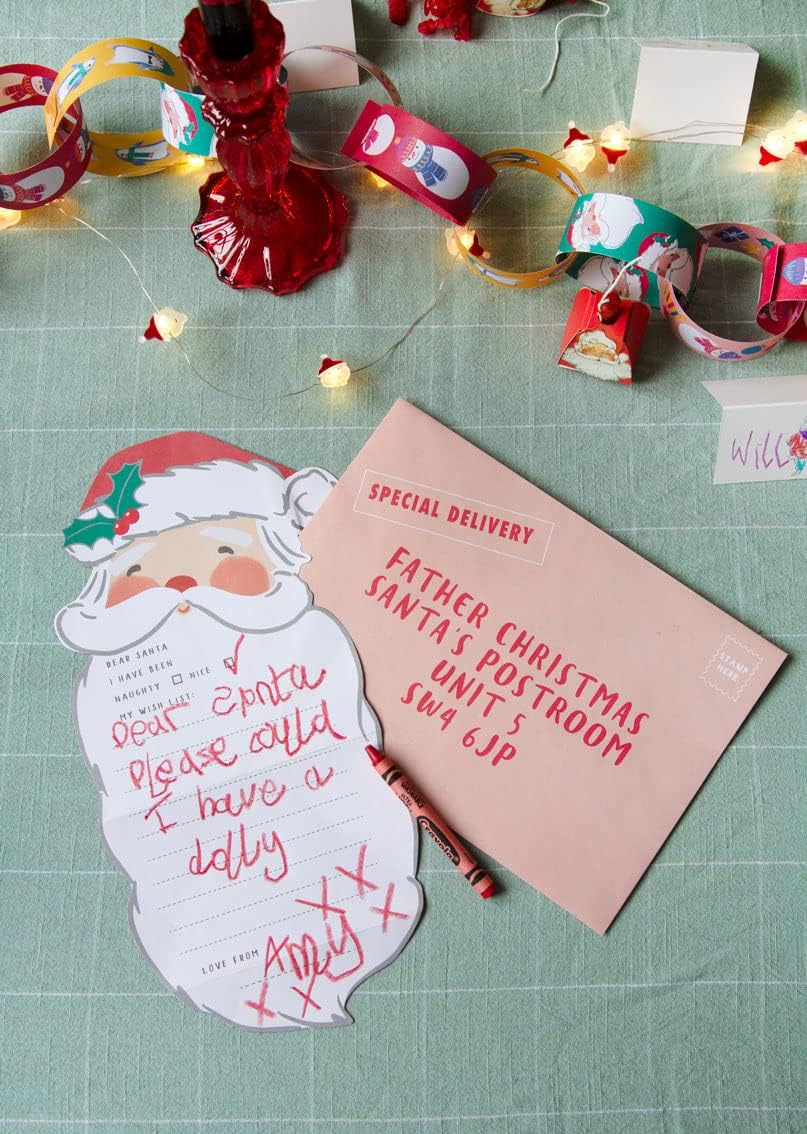 WILL
SPECIAL DELIVERY
FATHER CHRISTMAS
SANTA'S POSTROOM
UNIT 5
SW4 6JP
STAMP
HERE
DEAR SANTA
I HAVE BEEN
NAUGHTY NICE
MY WISH LIST:
Dear Santa
please could
I have a
dolly
X X
X X
LOVE FROM Amy
X X
Crayola
WASHABLE